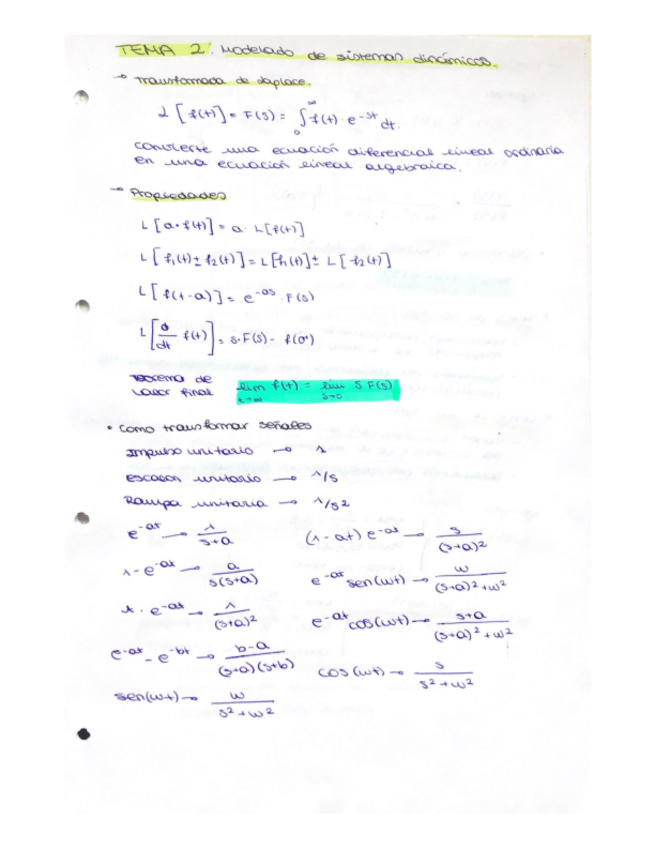 TEMA 2: Modelado de sistemas dinámicos.
→ Transformada de Laplace.
L [f(t)] = F(s) = ∫₀^∞ f(t)·e^-st dt.
convierte una ecuación diferencial lineal ordinaria
en una ecuación lineal algebraica.
→ Propiedades
L [a·f(t)] = a· L[f(t)]
L [f₁(t) ± f₂(t)] = L[f₁(t)] ± L [f₂(t)]
L [f(t-a)] = e^-as · F(s)
L [d/dt f(t)] = s·F(s) - f(0⁺)
Teorema de valor final lim t→∞ f(t) = lim s→0 s F(s)
• Como transformar señales
Impulso unitario → 1
Escalon unitario → 1/s
Rampa unitaria → 1/s2
e^-at → 1/(s+a) (1-at) e^-at → s/(s+a)²
1-e^-at → a/s(s+a) e^-at sen(wt) → w/(s+a)²+w²
t·e^-at → 1/(s+a)² e^-at cos(wt) → s+a/(s+a)²+w²
e^-at - e^-bt → b-a/(s+a)(s+b) cos(wt) → s/s²+w²
sen(wt) → w/s²+w²